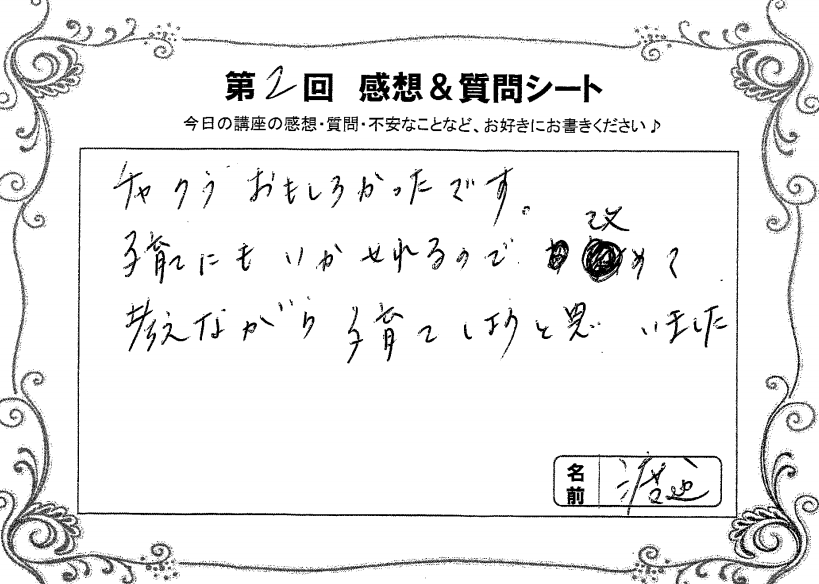 第2回 感想&質問シート
今日の講座の感想・質問・不安なことなど、お好きにお書きください♪
チャクラ おもしろかったです。
子育てにもいかせれるので 改めて
考えながら子育てしようと思いました
名前 渡辺